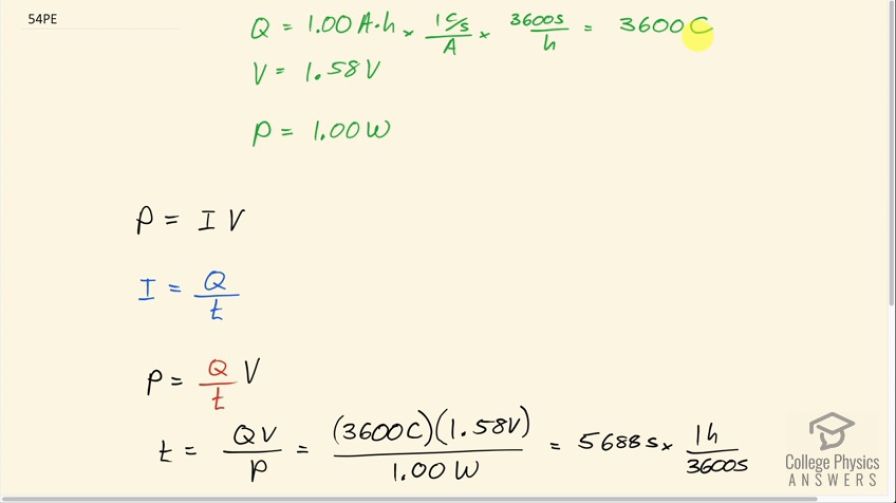 54PE
Q = 1.00 A·h × 1 C/s / A × 3600 s / h = 3600 C
V = 1.58 V
P = 1.00 W
P = I V
I = Q / t
P = Q / t V
t = QV / P = (3600 C)(1.58 V) / 1.00 W = 5688 s × 1 h / 3600 s
College Physics
ANSWERS